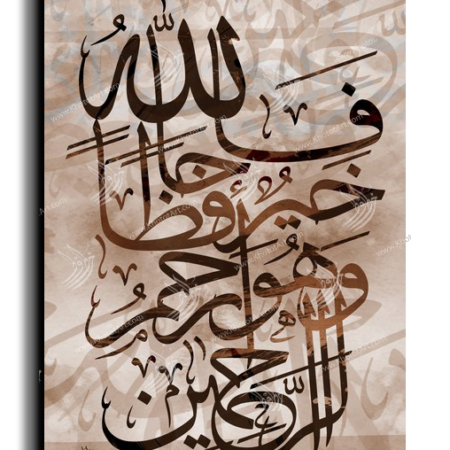 فَاللّٰهُ
خَيْرٌ حَافِظًا
وَهُوَ أَرْحَمُ
الرَّاحِمِينَ